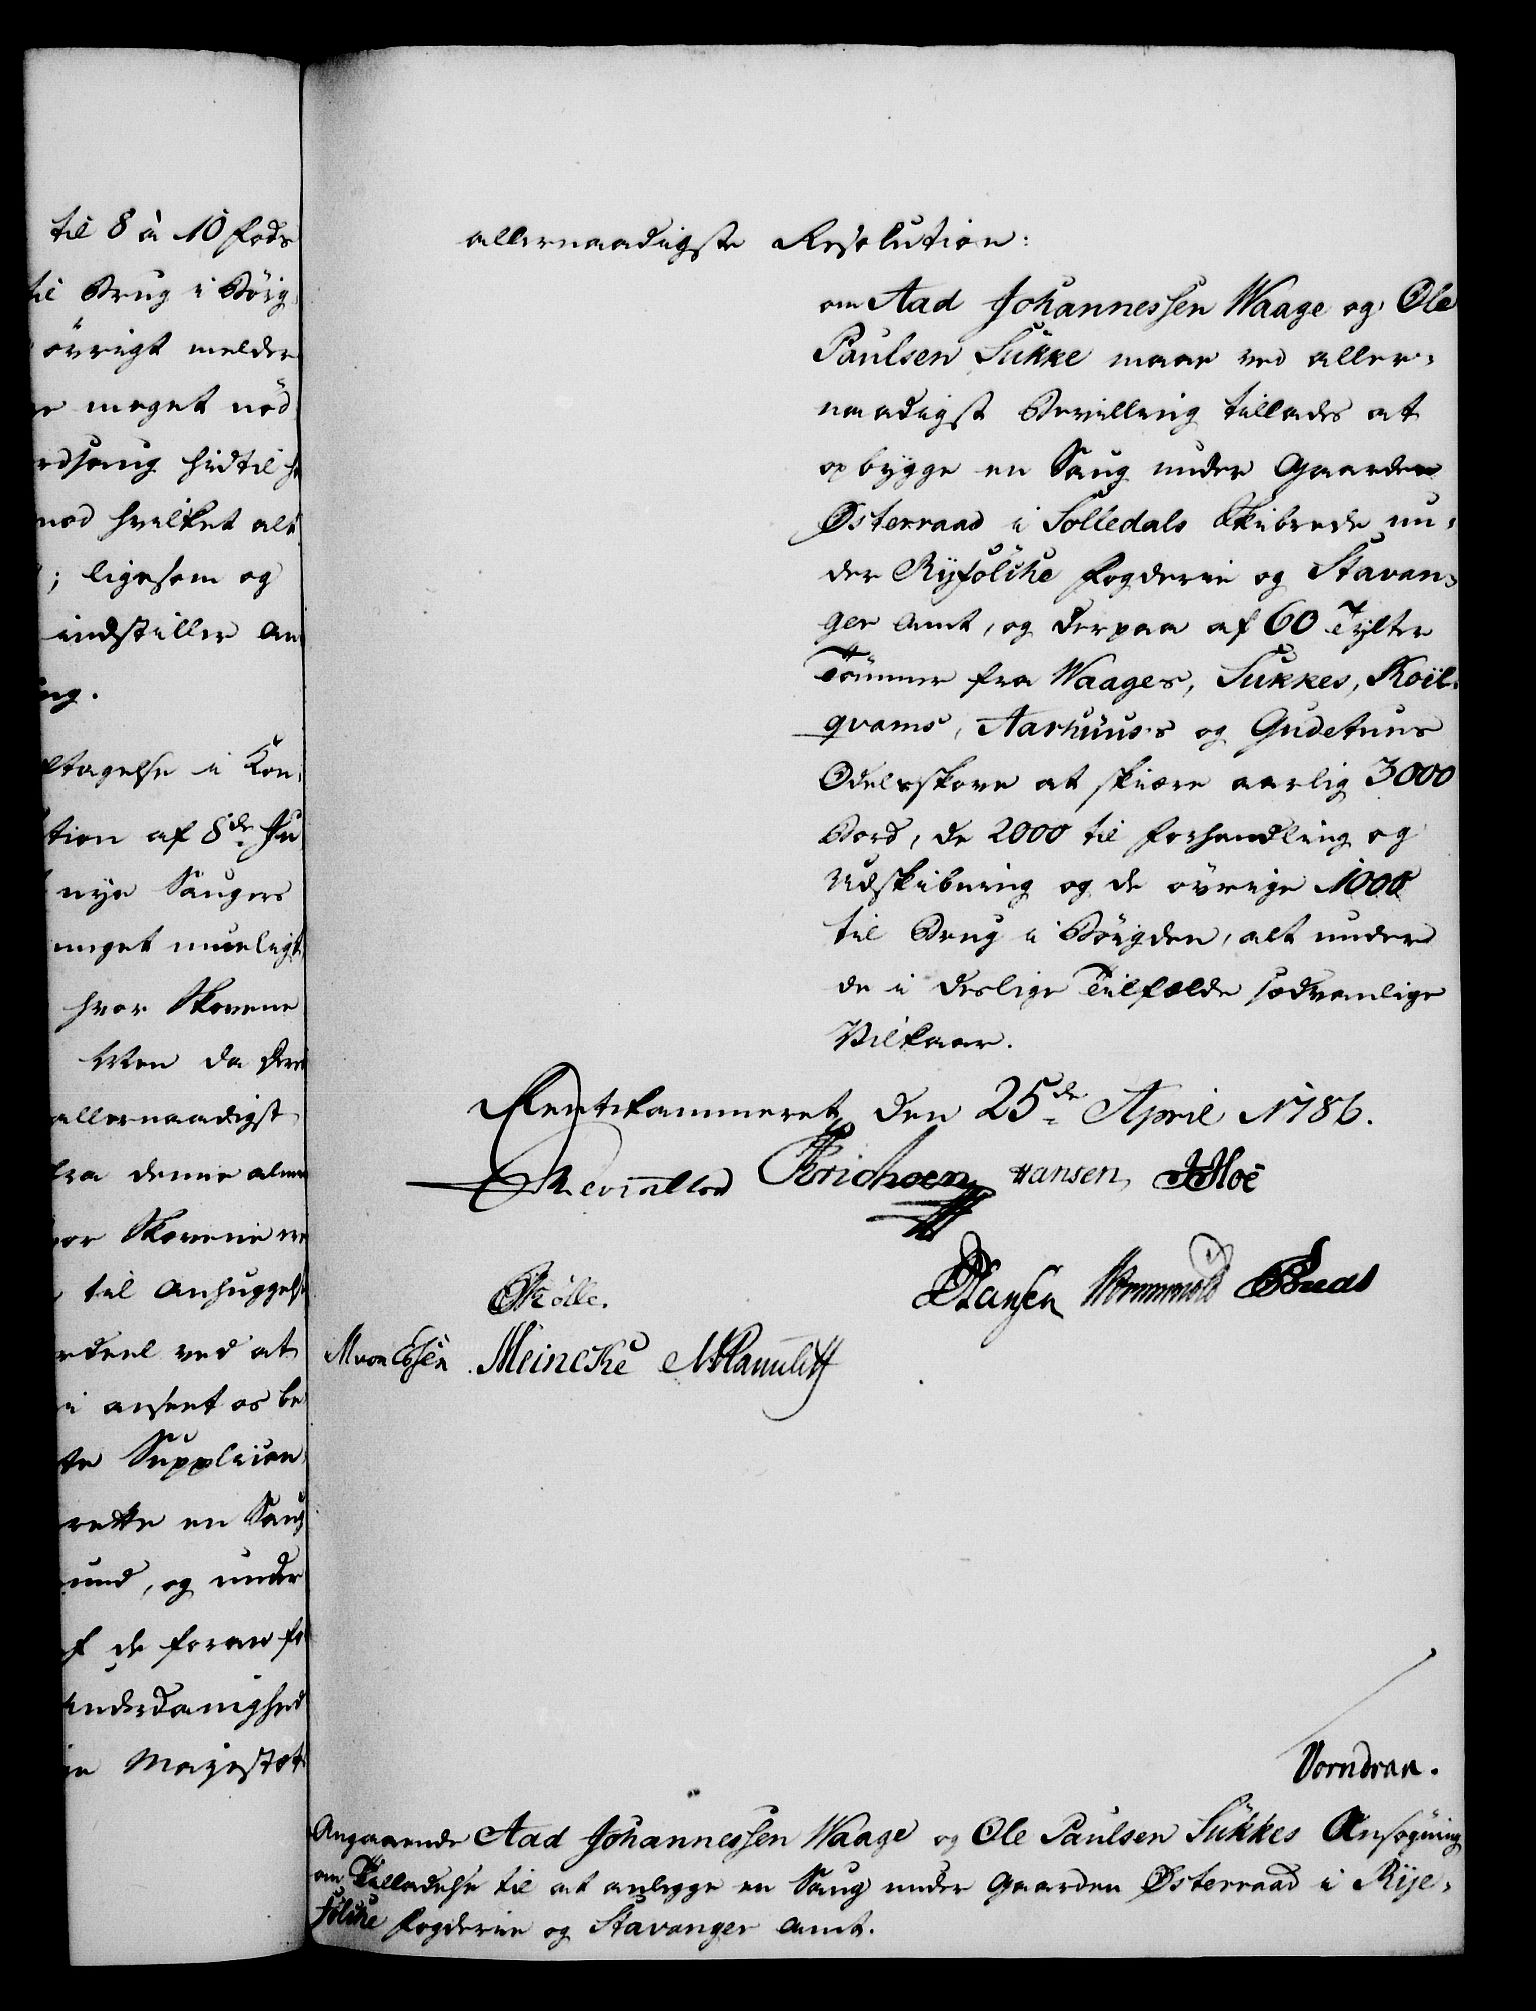 til 8 à 10 Fods
til Brug i Böig
övrigt melder
meget nöd
hidtil
mod hvilket alt
; ligesom og
indstiller an
ng.
ltagelse i Kon
tion af 8de Ju
nye Sauges
meget mueligt
hvor Skovene
Men da
allernaadigst
fra denne alm
vor Skovene
til Anhuggels
rdeel ved at
i anseet os be
te Supplican
rette en Saug
rund, og under
f de foran fo
Underdanighed
Majestæt
allernaadigste Resolution:
om Aad Johannessen Waage og Ole
Paulsen Sukke maae ved aller-
naadigst Bevilling tillades at
opbygge en Saug under Gaarden
Østerraad i Solledals Skibrede un-
der Ryfölche Fogderie og Stavan-
ger Amt, og derpaa af 60 Tylter
Tömmer fra Waages, Sukkes, Roil-
qvams, Aarhuus's og Gudetuns
Odelsskove at skiære aarlig 3000
Bord, de 2000 til Forhandling og
Udskibning og de övrige 1000
til Brug i Böigden, alt under
de i deslige Tilfælde sædvanlige
Vilkaar.
Rentekammeret den 25de April 1786.
Reventlow Erichsen Hansen, JHoë
Rölle. Hansen Wormskiold
M von Essen. Meincke
Vorndran.
Angaaende Aad Johannessen Waage og Ole Paulsen Sukkes Ansögning
om Tilladelse til at anlægge en Saug under Gaarden Østerraad i Rye-
fölche Fogderie og Stavanger Amt.